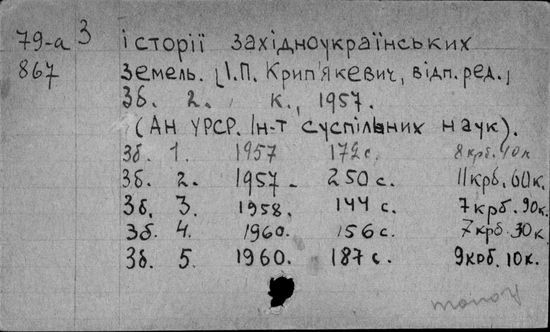 79-а З історії західноукраїнських
867 земель. [І.П. Крип'якевич, відп. ред.]
Зб. 2. К., 1957.
(Ан УРСР. Ін-т суспільних наук).
Зб. 1. 1957 172 с. 8 крб. 40 к.
Зб. 2. 1957 - 250 с. 11 крб. 60 к.
Зб. 3. 1958. 144 с. 7 крб. 90 к.
Зб. 4. 1960. 156 с. 7 крб. 30 к.
Зб. 5. 1960. 187 с. 9 крб. 10 к.